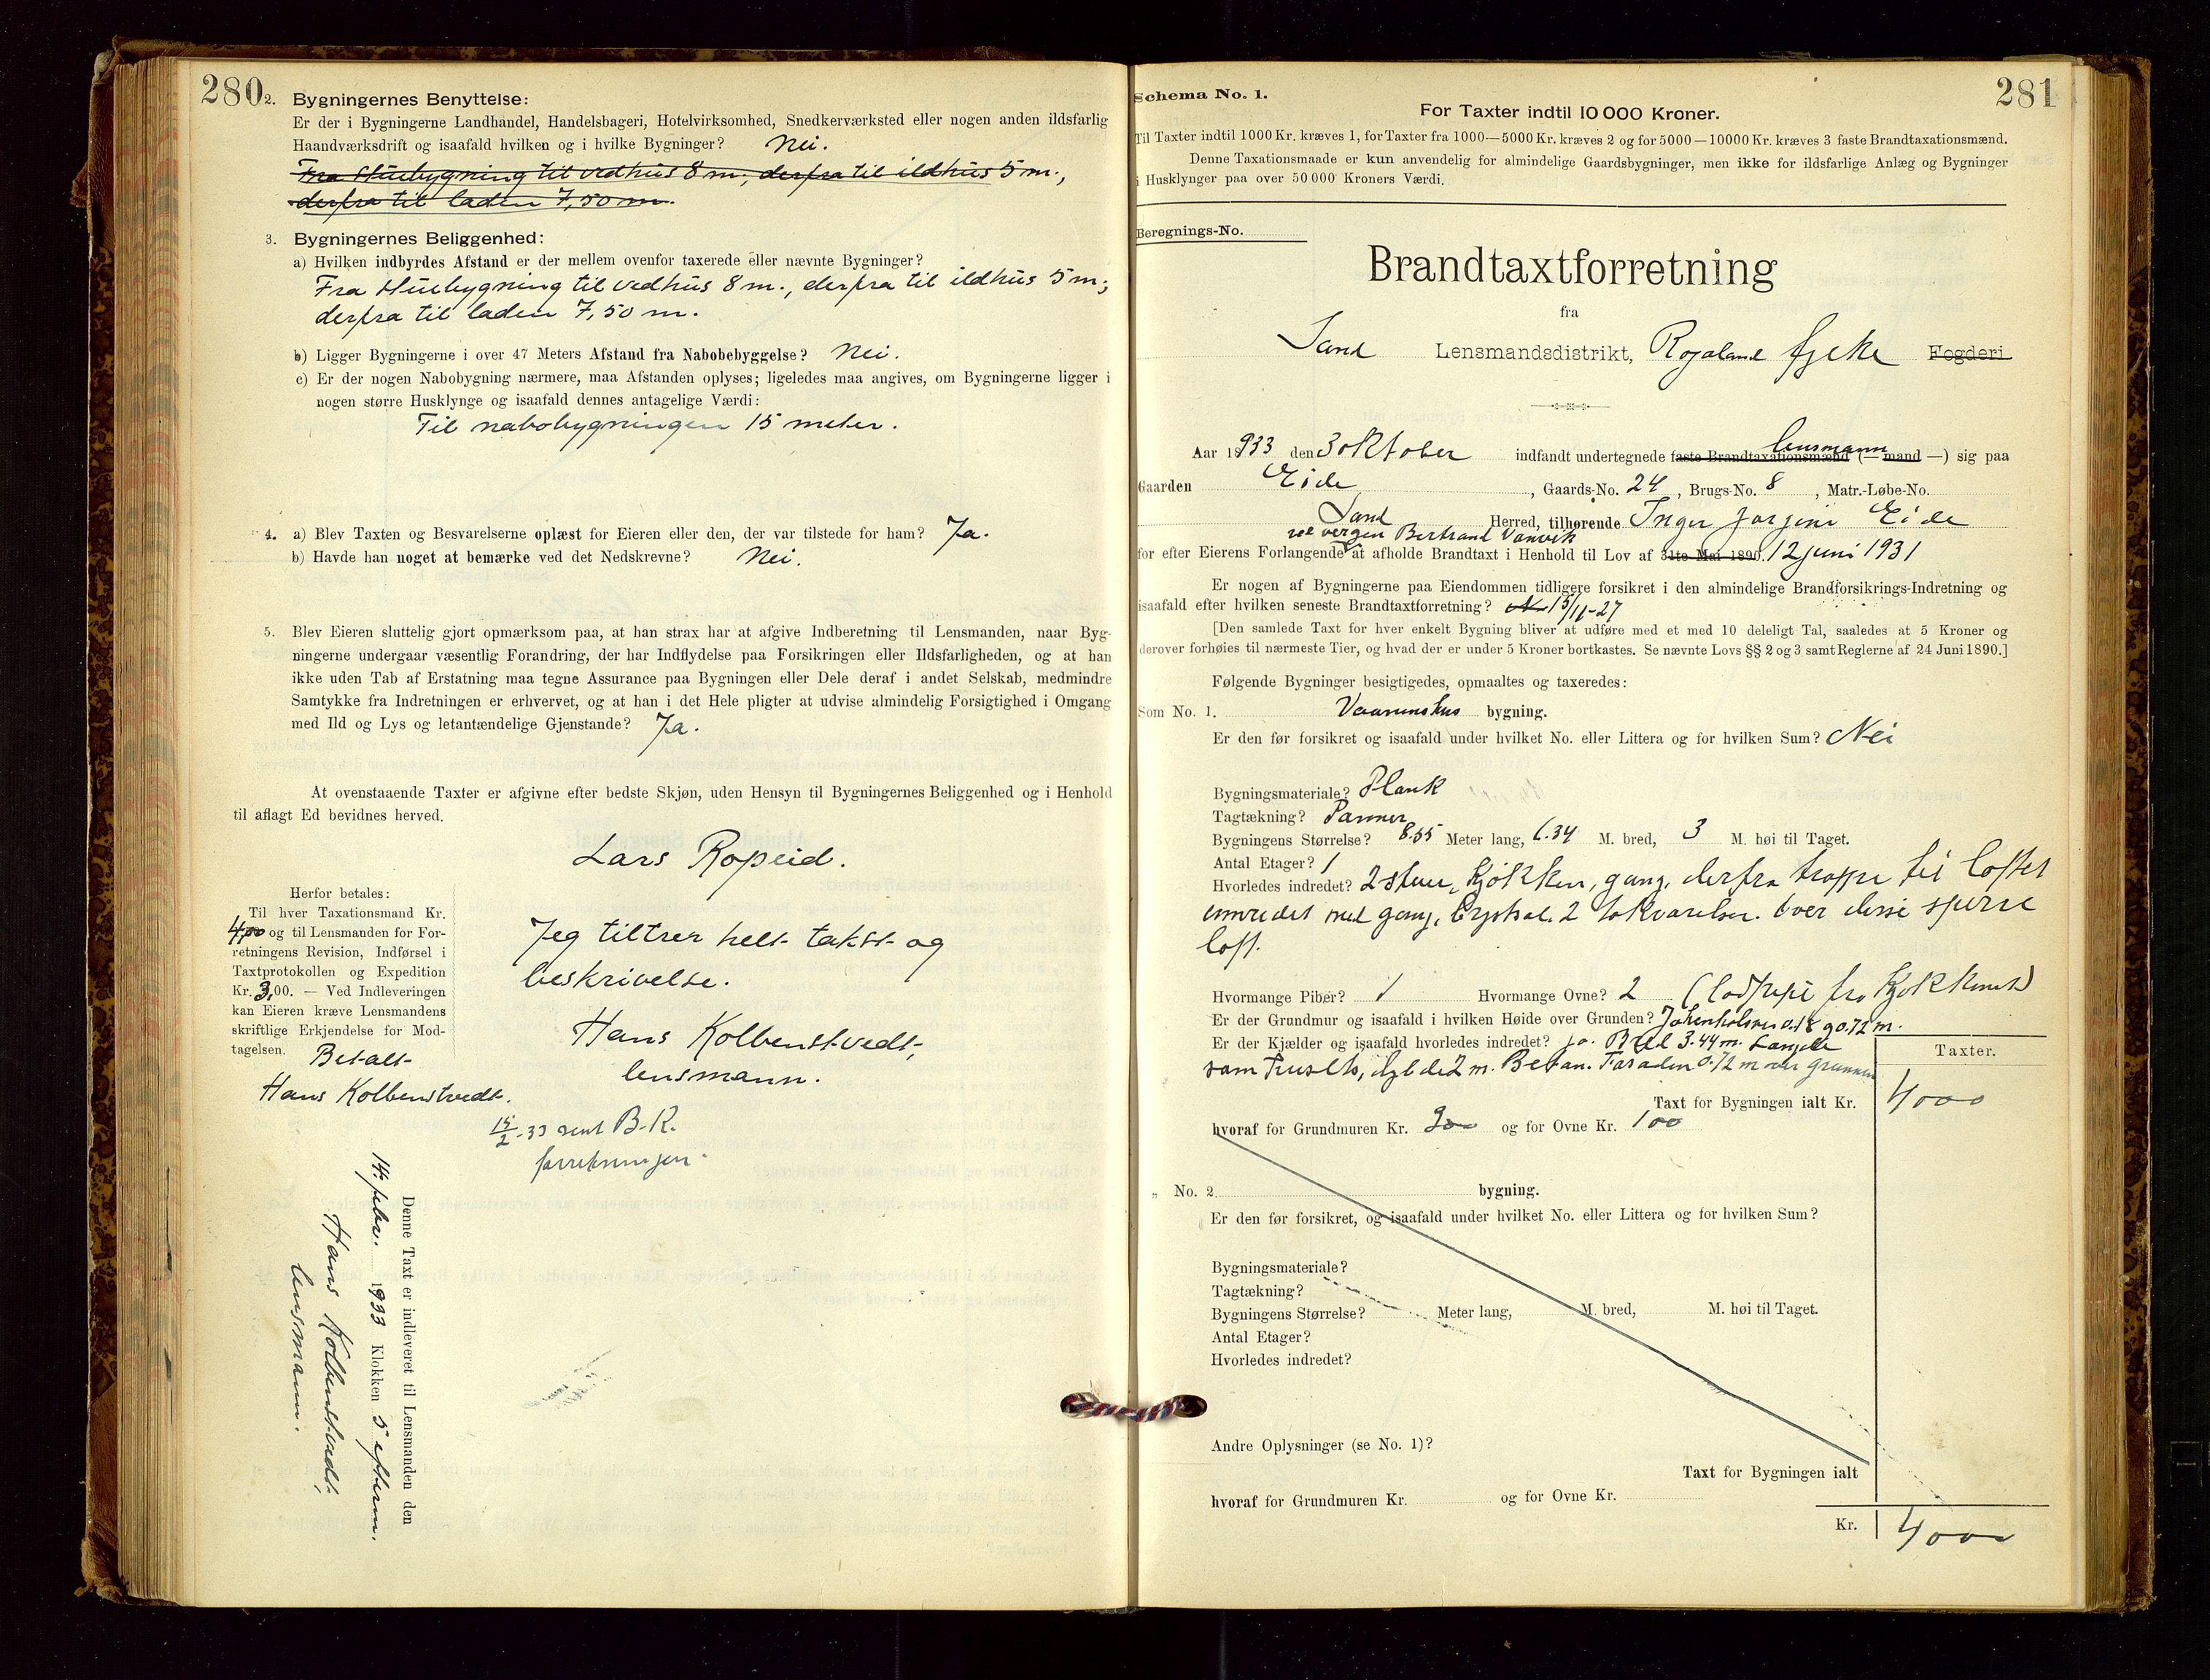 280
2. Bygningernes Benyttelse:
Er der i Bygningerne Landhandel, Handelsbageri, Hotelvirksomhed, Snedkerværksted eller nogen anden ildsfarlig
Haandværksdrift og isaafald hvilken og i hvilke Bygninger? Nei.
Fra Stuebygning til vedhus 8 m., derfra til ildhus 5 m.,
derfra til laden 7,50 m.
3. Bygningernes Beliggenhed:
a) Hvilken indbyrdes Afstand er der mellem ovenfor taxerede eller nævnte Bygninger?
Fra Stuebygning til vedhus 8 m., derfra til ildhus 5 m.;
derfra til laden 7,50 m.
b) Ligger Bygningerne i over 47 Meters Afstand fra Nabobebyggelse? Nei.
c) Er der nogen Nabobygning nærmere, maa Afstanden oplyses; ligeledes maa angives, om Bygningerne ligger i
nogen større Husklynge og isaafald dennes antagelige Værdi:
Til nabobygningen 15 meter.
4. a) Blev Taxten og Besvarelserne oplæst for Eieren eller den, der var tilstede for ham? Ja.
b) Havde han noget at bemærke ved det Nedskrevne? Nei.
5. Blev Eieren sluttelig gjort opmærksom paa, at han strax har at afgive Indberetning til Lensmanden, naar Byg-
ningerne undergaar væsentlig Forandring, der har Indflydelse paa Forsikringen eller Ildsfarligheden, og at han
ikke uden Tab af Erstatning maa tegne Assurance paa Bygningen eller Dele deraf i andet Selskab, medmindre
Samtykke fra Indretningen er erhvervet, og at han i det Hele pligter at udvise almindelig Forsigtighed i Omgang
med Ild og Lys og letantændelige Gjenstande? Ja.
At ovenstaaende Taxter er afgivne efter bedste Skjøn, uden Hensyn til Bygningernes Beliggenhed og i Henhold
til aflagt Ed bevidnes herved.
Lars Ropeid.
Jeg tiltrer helt takst og
beskrivelse.
Hans Kolbenstvedt,
lensmann.
15/2-33 sent B.K.
forretningen
Herfor betales:
Til hver Taxationsmand Kr.
4,00 og til Lensmanden for For-
retningens Revision, Indførsel i
Taxtprotokollen og Expedition
Kr. 3,00. — Ved Indleveringen
kan Eieren kræve Lensmandens
skriftlige Erkjendelse for Mod-
tagelsen. Betalt
Hans Kolbenstvedt.
Denne Taxt er indleveret til Lensmanden den
14. febr. 1933 Klokken 5 efterm.
Hans Kolbenstvedt,
lensmann.
281
Schema No. 1.
For Taxter indtil 10 000 Kroner.
Til Taxter indtil 1000 Kr. kræves 1, for Taxter fra 1000—5000 Kr. kræves 2 og for 5000—10000 Kr. kræves 3 faste Brandtaxationsmænd.
Denne Taxationsmaade er kun anvendelig for almindelige Gaardsbygninger, men ikke for ildsfarlige Anlæg og Bygninger
i Husklynger paa over 50 000 Kroners Værdi.
Beregnings-No.
Brandtaxtforretning
fra
Sand Lensmandsdistrikt, Rogaland fylke Fogderi
lensmann
Aar 1933 den 3 oktober indfandt undertegnede faste Brandtaxationsmænd (—mand—) sig paa
Gaarden Eide, Gaards-No. 24, Brugs-No. 8, Matr.-Løbe-No.
Sand Herred, tilhørende Inger Jorgine Eide
ved vergen Bertrand Vanvik
for efter Eierens Forlangende at afholde Brandtaxt i Henhold til Lov af 31te Mai 1890. 12 juni 1931
Er nogen af Bygningerne paa Eiendommen tidligere forsikret i den almindelige Brandforsikrings-Indretning og
isaafald efter hvilken seneste Brandtaxtforretning? 15/11-27
[Den samlede Taxt for hver enkelt Bygning bliver at udføre med et med 10 deleligt Tal, saaledes at 5 Kroner og
derover forhøies til nærmeste Tier, og hvad der er under 5 Kroner bortkastes. Se nævnte Lovs §§ 2 og 3 samt Reglerne af 24 Juni 1890.]
Følgende Bygninger besigtigedes, opmaaltes og taxeredes:
Som No. 1. Vaaningshus bygning.
Er den før forsikret og isaafald under hvilket No. eller Littera og for hvilken Sum? Nei
Bygningsmateriale? Plank
Tagtækning? Panner
Bygningens Størrelse? 8.55 Meter lang, 6.34 M. bred, 3 M. høi til Taget.
Antal Etager? 1
Hvorledes indredet? 2 stuer, kjøkken, gang, derfra trappe til loftet
innredet med gang, 2 Over disse sperre
loft.
Hvormange Piber? 1 Hvormange Ovne? 2 fra kjøkkenet)
Er der Grundmur og isaafald i hvilken Høide over Grunden? 0.72 m.
Er der Kjælder og isaafald hvorledes indredet? ja. Bred 3.44 m. Længde
som huset, 2 m. 0.72 m over grunnen
Taxter.
Taxt for Bygningen ialt Kr. 4000
hvoraf for Grundmuren Kr. 300 og for Ovne Kr. 100
„ No. 2 bygning.
Er den før forsikret, og isaafald under hvilket No. eller Littera og for hvilken Sum?
Bygningsmateriale?
Tagtækning?
Bygningens Størrelse? Meter lang, M. bred, M. høi til Taget.
Antal Etager?
Hvorledes indredet?
Andre Oplysninger (se No. 1)?
Taxt for Bygningen ialt
hvoraf for Grundmuren Kr. og for Ovne Kr.
Kr. 4000